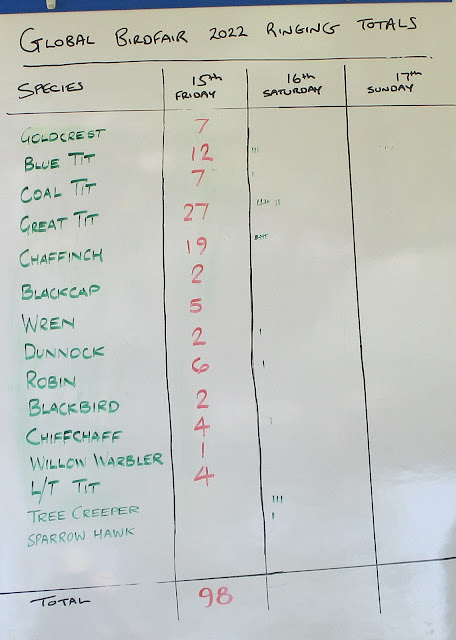 GLOBAL BIRDFAIR 2022 RINGING TOTALS
SPECIES 15th FRIDAY 16th SATURDAY 17th SUNDAY
GOLDCREST 7
BLUE TIT 12 III
COAL TIT 7 I
GREAT TIT 27 IIII II
CHAFFINCH 19 IIII
BLACKCAP 2
WREN 5
DUNNOCK 2 I
ROBIN 6 I
BLACKBIRD 2
CHIFFCHAFF 4 I
WILLOW WARBLER 1
L/T TIT 4
TREE CREEPER III
SPARROW HAWK I
TOTAL 98